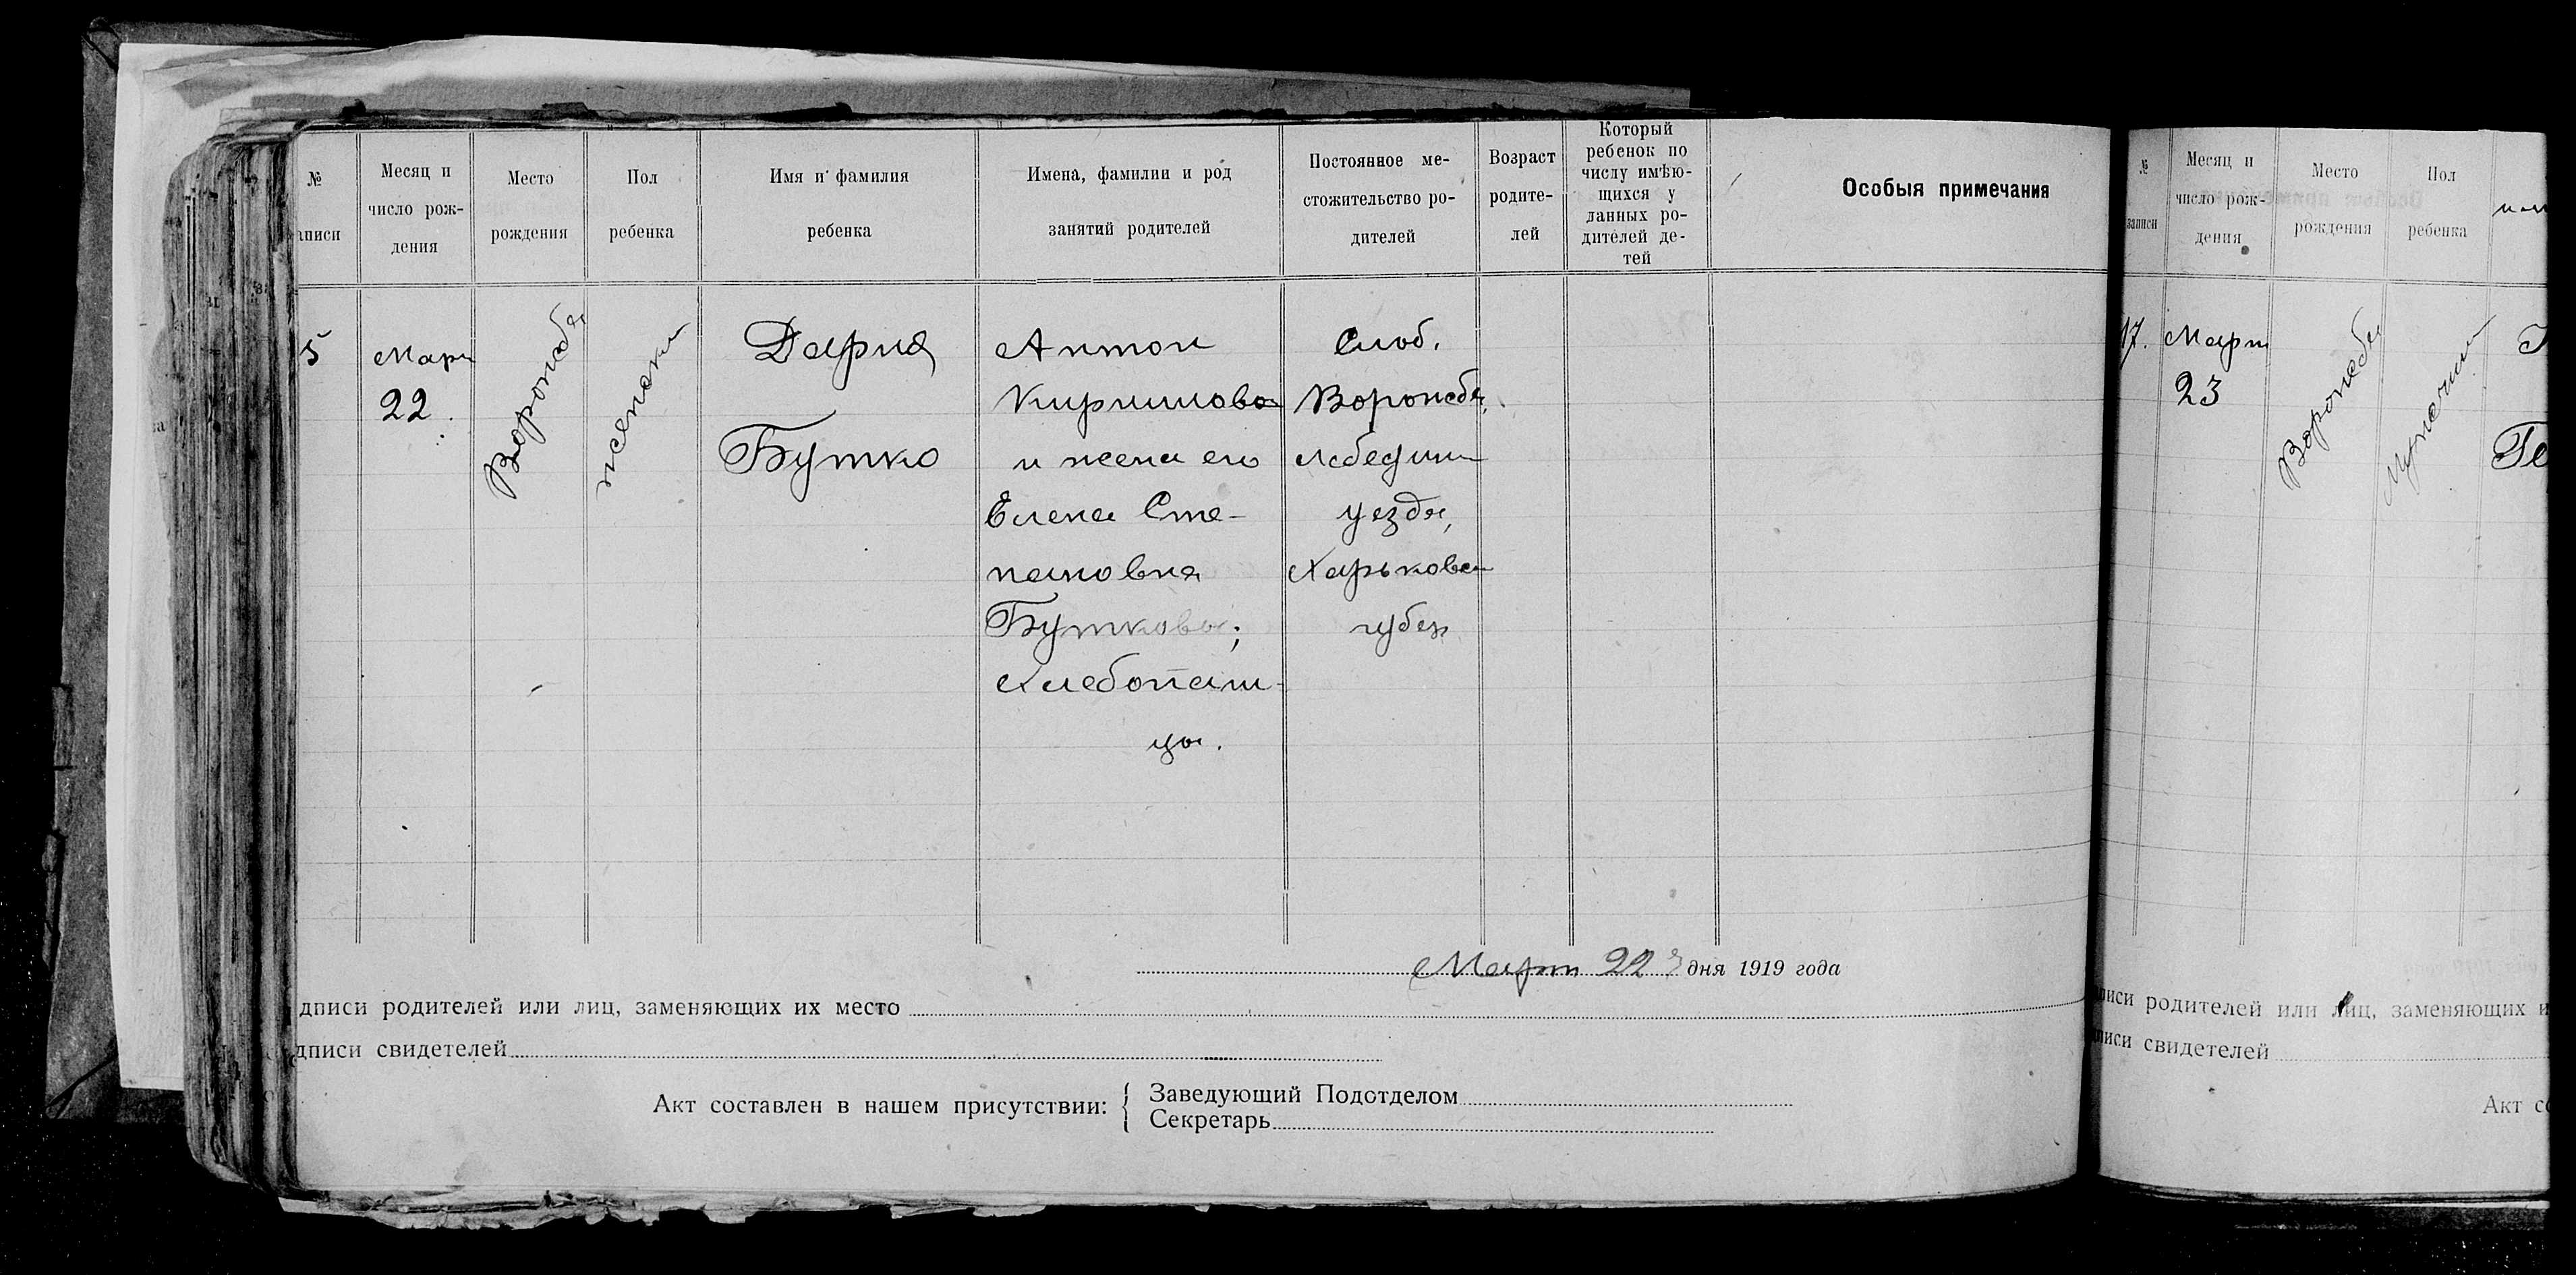 №
аписи
Месяц и
число рож-
дения
Место
рождения
Пол
ребенка
Имя и фамилия
ребенка
Имена, фамилии и род
занятий родителей
Постоянное ме-
стожительство ро-
дителей
Возраст
родите-
лей
Который
ребенок по
числу имѣю-
щихся у
данных ро-
дителей де-
тей
Особыя примечания
5
Март
22.
Ворожба
женски
Дария
Бутко
Антон
Кириллова
и жена его
Елена Сте-
пановна
Бутковы;
Хлебопаш-
цы.
Слоб.
Ворожба,
Лебедин
уезда,
Харьковс
губер
Март 22 дня 1919 года
дписи родителей или лиц, заменяющих их место
дписи свидетелей
Акт составлен в нашем присутствии:
Заведующий Подотделом
Секретарь
№
записи
Месяц и
число рож-
дения
Место
рождения
Пол
ребенка
17.
Март
23
Ворожба
Мужеский
Ге
писи родителей или лиц, заменяющих и
писи свидетелей
Акт со